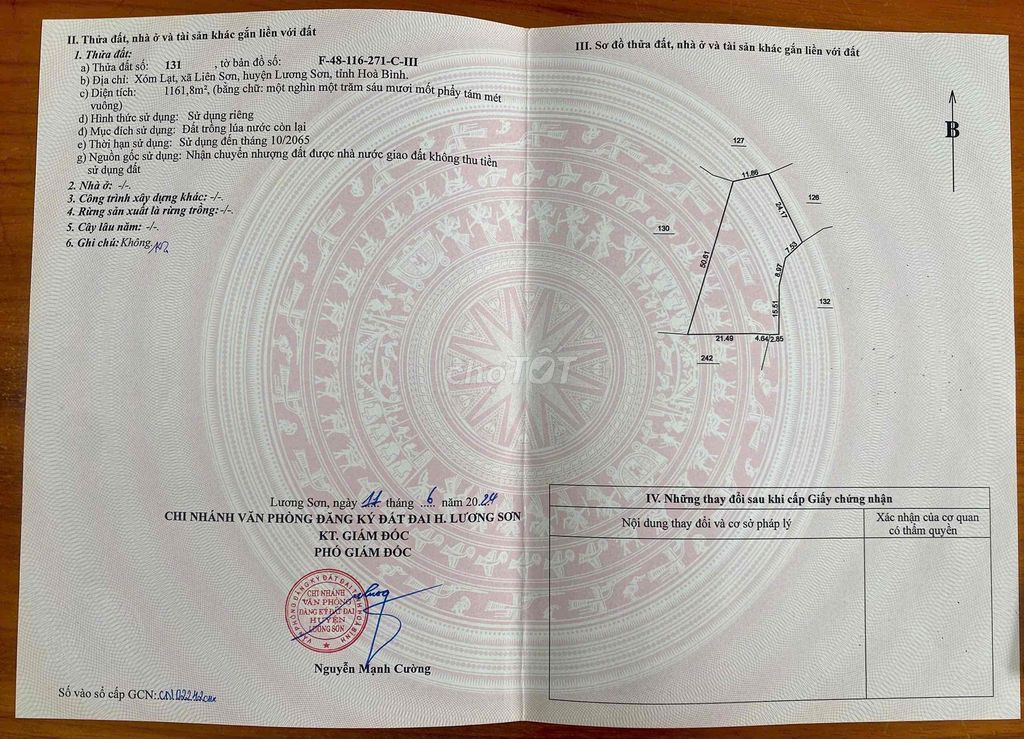 II. Thửa đất, nhà ở và tài sản khác gắn liền với đất
1. Thửa đất:
a) Thửa đất số: 131 , tờ bản đồ số: F-48-116-271-C-III
b) Địa chỉ: Xóm Lạt, xã Liên Sơn, huyện Lương Sơn, tỉnh Hoà Bình.
c) Diện tích: 1161,8m², (bằng chữ: một nghìn một trăm sáu mươi mốt phẩy tám mét
vuông)
d) Hình thức sử dụng: Sử dụng riêng
đ) Mục đích sử dụng: Đất trồng lúa nước còn lại
e) Thời hạn sử dụng: Sử dụng đến tháng 10/2065
g) Nguồn gốc sử dụng: Nhận chuyển nhượng đất được nhà nước giao đất không thu tiền
sử dụng đất
2. Nhà ở: -/-.
3. Công trình xây dựng khác: -/-.
4. Rừng sản xuất là rừng trồng: -/-.
5. Cây lâu năm: -/-.
6. Ghi chú: Không
Lương Sơn, ngày 17 tháng 6 năm 2024
CHI NHÁNH VĂN PHÒNG ĐĂNG KÝ ĐẤT ĐAI H. LƯƠNG SƠN
KT. GIÁM ĐỐC
PHÓ GIÁM ĐỐC
VĂN PHÒNG ĐĂNG KÝ ĐẤT ĐAI TỈNH HOÀ BÌNH
CHI NHÁNH
VĂN PHÒNG
ĐĂNG KÝ ĐẤT ĐAI
HUYỆN
LƯƠNG SƠN
Nguyễn Mạnh Cường
Số vào sổ cấp GCN:
III. Sơ đồ thửa đất, nhà ở và tài sản khác gắn liền với đất
B
127
11.86
126
24.17
130
7.53
50.81
8.97
132
15.51
21.49
4.64
2.85
242
Chợ TỐT
IV. Những thay đổi sau khi cấp Giấy chứng nhận
Nội dung thay đổi và cơ sở pháp lý
Xác nhận của cơ quan
có thẩm quyền